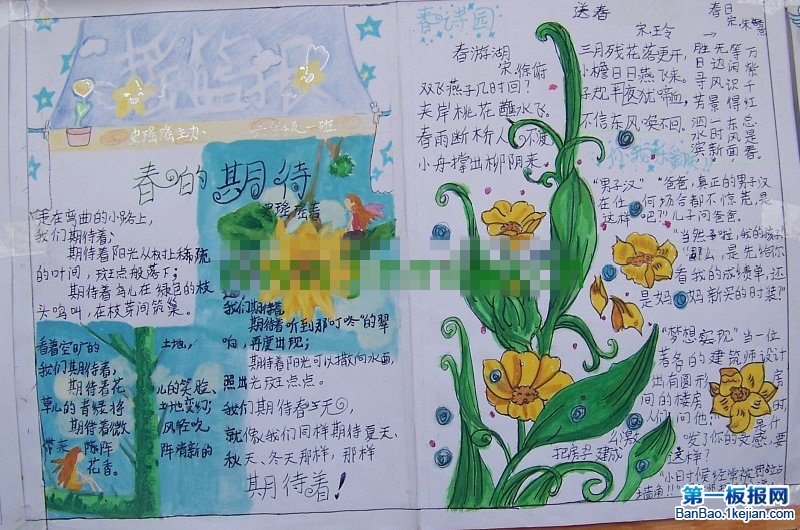 摇篮报
史瑶瑶主办
春的期待
走在弯曲的小路上,
我们期待着,
期待着阳光从树上稀疏
的叶间,斑点般落下;
期待着鸟儿在绿色的枝
头鸣叫,在枝芽间筑巢。
看着空旷的土地,
我们期待着,
期待着花儿的笑脸、
草儿的青绿将土地变幻;
期待着微风轻吹,
带来阵阵清新的
花香。
我们期待着
期待着听到那"叮咚"的翠
响,再度出现;
期待着阳光可以撒向水面,
照出光放点点。
我们期待春天,
就像我们同样期待夏天、
秋天、冬天那样,那样
期待着!
春诗园
春游湖
宋·徐俯
双飞燕子几时回?
夹岸桃花蘸水飞。
春雨断桥人不渡
小舟撑出柳阴来。
送春
宋·王令
三月残花落更开,
小檐日日燕飞来。
子规半夜犹啼血,
不信东风唤不回。
春日
宋·朱熹
胜日寻芳泗水滨
无边光景一时新
等闲识得东风面
万紫千红总是春。
"男子汉"
"爸爸,真正的男子汉
在任何场合都不惊慌,是
这样吧?"儿子问爸爸。
"当然了啦,我的孩子。"
"那么,是先给你
看我的成绩单,还
是妈妈新买的时装?"
"梦想实现"
当一位
著名的建筑师设计
出有圆形房
间的楼房时,
人们问他:
是什
么激发了你的灵感,要
把房子建成这样?
"小日时候经常被用站
墙角!!
第一板报网
BanBao.1kejian.com